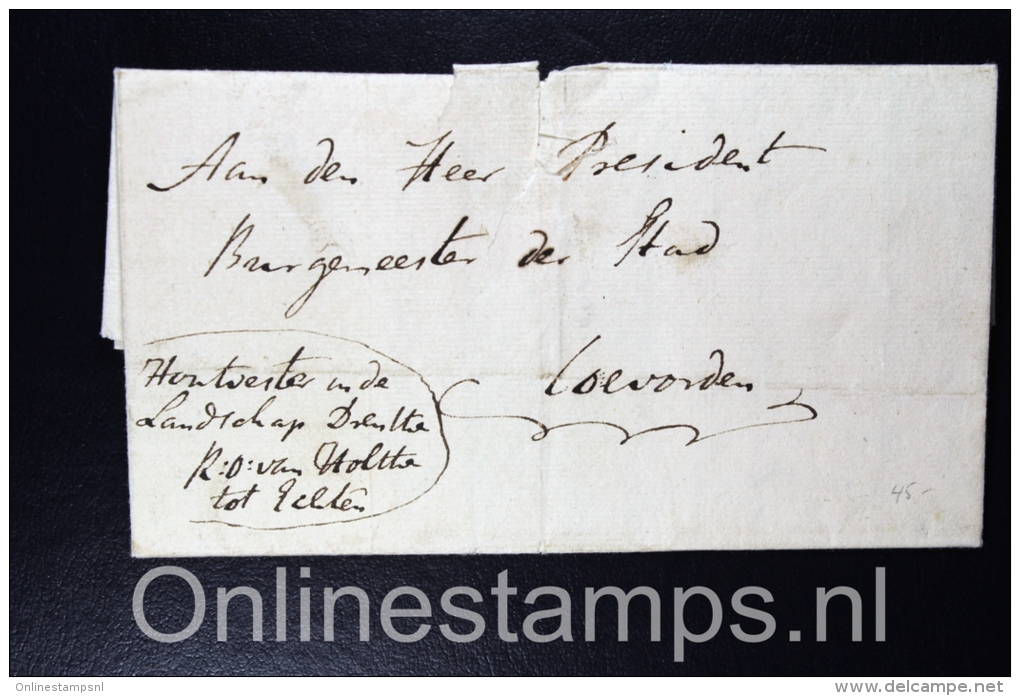 Aan den Heer President
Burgemeester der Stad
Coevorden
Houtvester in de
Landschap Drenthe
R:O: van Holthe
tot Echten
45-
Onlinestamps.nl
Onlinestampsnl
www.delcampe.net